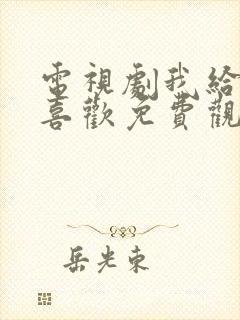 電視劇我給
喜歡免費觀
岳光東